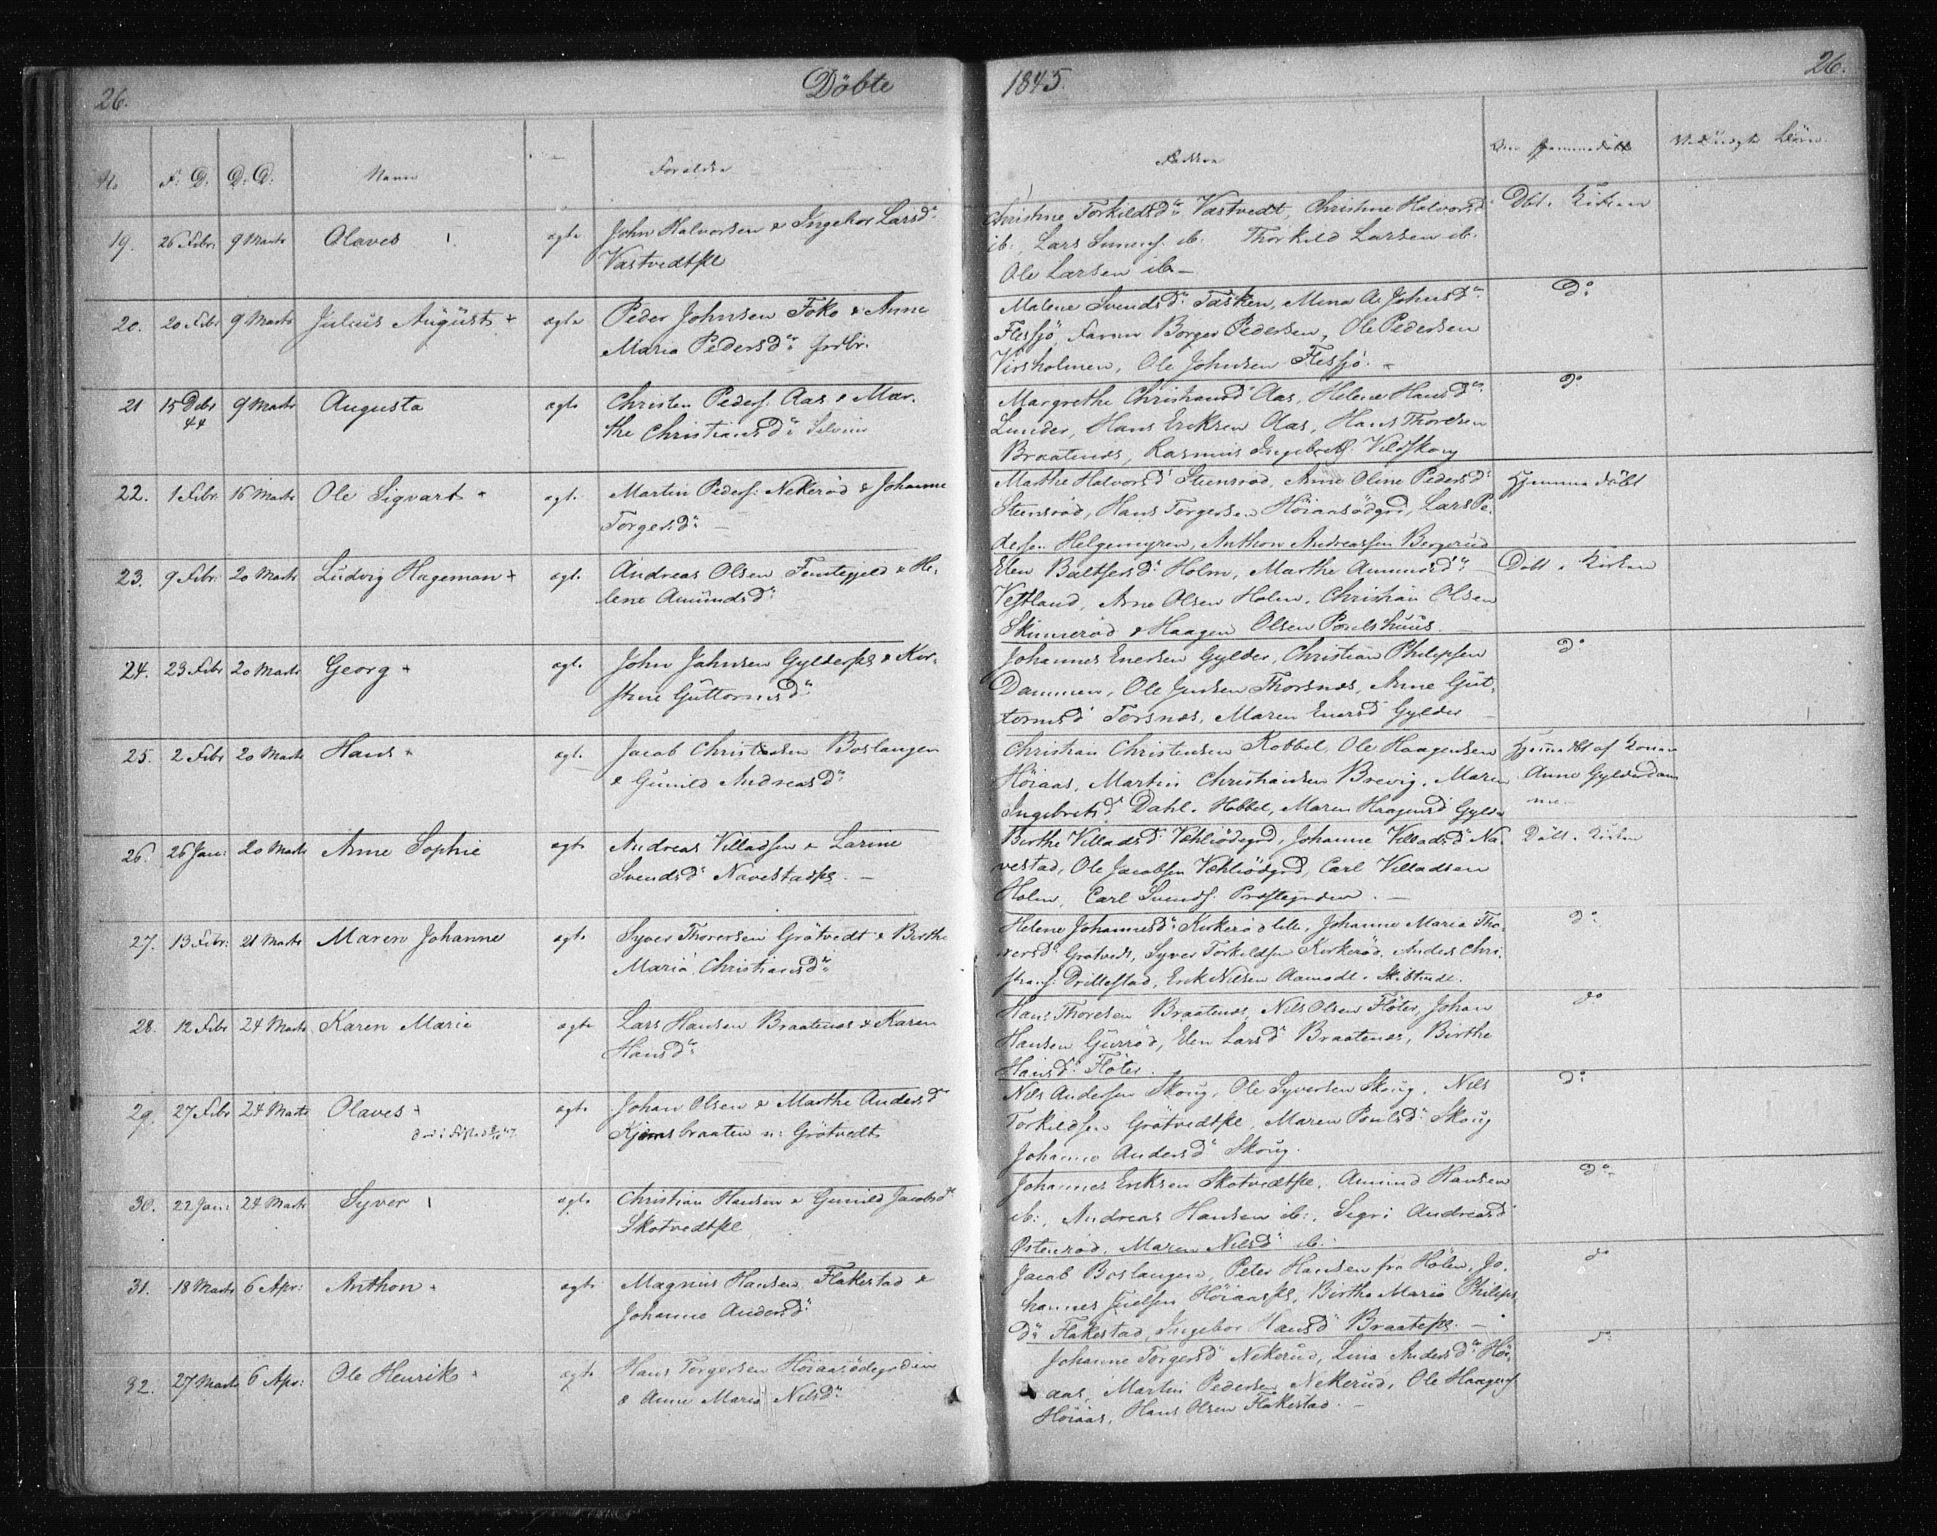 26. Döbte 1845. 26.
No F: D. D: D: Navn Forældre Faddere Om hjemmedöbt
19. 26 Febr 9 Marts Olaves ægte John Halvorsen & Ingebor Larsdr
Vastvedtpl
Christine Torkildsdr Vastvedt, Christine Halvorsd
ib: Lars ib. Thorkild Larsen ib.
Ole Larsen ib –
Dbt. i Kirken
20. 20 Febr 9 Marts Julius August + ægte Peder Johnsen Foko & Anne
Maria Pedersdr
Malene Svendsdr Tasken, Mina A. Johnsdr
Flessjö, Borger Pedersen, Ole Pedersen
Virsholmen, Ole Johnsen Flessjö. –
Do
21 15 Debr 44 9 Marts Augusta ægte Christen Pedersf. Aas & Mar-
the Christiansdr
Margrethe Christiansd Aas, Helene Hansdr
Lunder, Hans Eriksen Aas, Hans Thoresen
Braatenes, Rasmus Ingebrets. Vildskoug
do
22. 1 Febr. 16 Marts Ole Sigvart + ægt. Martin Peders: Nekeröd & Johanne
Torgersdr –
Mathe Halvorsdr Steensröd, Anne Oline Pedersdr
Steensröd, Hans Torgersen Höiaasödegrd, Lars Pe-
dersen Helgemyren, Anthon Andreassen Bergerud
Hjemmedöbt
23. 9 Febr. 20 Marts Ludvig Hageman + ægt. Andreas Olsen Femtegjeld & He-
lene Amundsdr
Elen Baltsersdr Holm, Marthe Amundsdr –
Vestland, Arne Olsen Holm, Christian Olsen
Skinneröd & Haagen Olsen Poulshuus
Döbt i Kirken
24. 23 Febr 20 Marts Georg + ægt. John Johnsen Gylderpl & Kir-
stine Guttormsdr
Johannes Enersen Gylder, Christian Philipsen
Dammen, Ole Jensen Thorsnæs, Anne Gut-
tormsd Torsnæs, Maren Enersd Gylder –
do
25. 2 Febr 20 Marts Hans + ægt. Jacob Christensen Boslangen
& Gunild Andreasdr
Christian Christensen Kobbel, Ole Haagensen
Höiaas, Martin Christiansen Brevig, Maren
Ingebretsd Dahl. Hobbel, Maren Haagensd Gylder
Hjemdbt af Konen
Anne Gylderdam
men.
26. 26 Jan: 20 Marts Anne Sophie ægte Andreas Villadsen & Larine
Svendsdr Navestadpl. –
Birthe Villadsdr Væhliödegrd, Johanne Villadsd Na-
vestad, Ole Jacobsen Væhliödgrd, Carl Villadsen
Holm, Carl Svends. Præstegrden. –
Döbt i Kirken
27. 13 Febr: 21 Marts Maren Johanne ægte Syver Thoresen Grötvedt & Birthe
Maria Christiansdr
Helene Johannesdr Kirkeröd lille, Johanne Maria Tho-
resdr Grötvedt, Syver Torkildsen Kirkeröd, Anders Chri-
stians: Drillestad, Erik Nilsen Aamodt i Skibtvedt.
do
28. 12 Febr 24 Marts Karen Marie ægte Lars Hansen Braatenes & Karen
Hansdr
Hans Thoresen Braatenæs, Nils Olsen Flöter, Johan
Hansen Gurröd, Elen Larsd Braatenæs, Birthe
Hansdr Flöter.
do
29. 27 Febr 24 Marts Olaves + ægte Johan Olsen & Marthe Andersdr
Kjærnsbraaten u: Grötvedt
Nils Andersen Skoug, Ole Syversen Skoug, Nils
Torkildsen Grötvedtpl, Maren Poulsdr Skoug
Johanne Andersdr Skoug.
do
30. 22 Jan: 24 Marts Syver ægte Christian Hansen & Gunild Jacobsdr
Skotvedtpl
Johannes Eriksen Skotvedtpl, Amund Hansen
ib:, Andreas Hansen ib:, Sigri Andreasd
Östenröd, Maren Nilsd ib: –
do
31. 18 Marts 6 Apr: Anthon + ægte Magnus Hansen Flakestad &
Johanne Andersdr
Jacob Boslangen, Peter Hansen fra Hölen, Jo-
hannes Juelsen Höiaaspl, Birthe Maria Philips-
dr Flakestad, Ingebor Hansd Braatepl. –
do
32. 27 Marts 6 Apr: Ole Henrik + ægte Hans Torgersen Höiaasödegrden
& Anne Maria Nilsdr
Johanne Torgersd Nekerud, Lina Andersdr Höi-
aas, Martin Pedersen Nekerud, Ole Haagens
Höiaas, Hans Olsen Flakestad. –
do